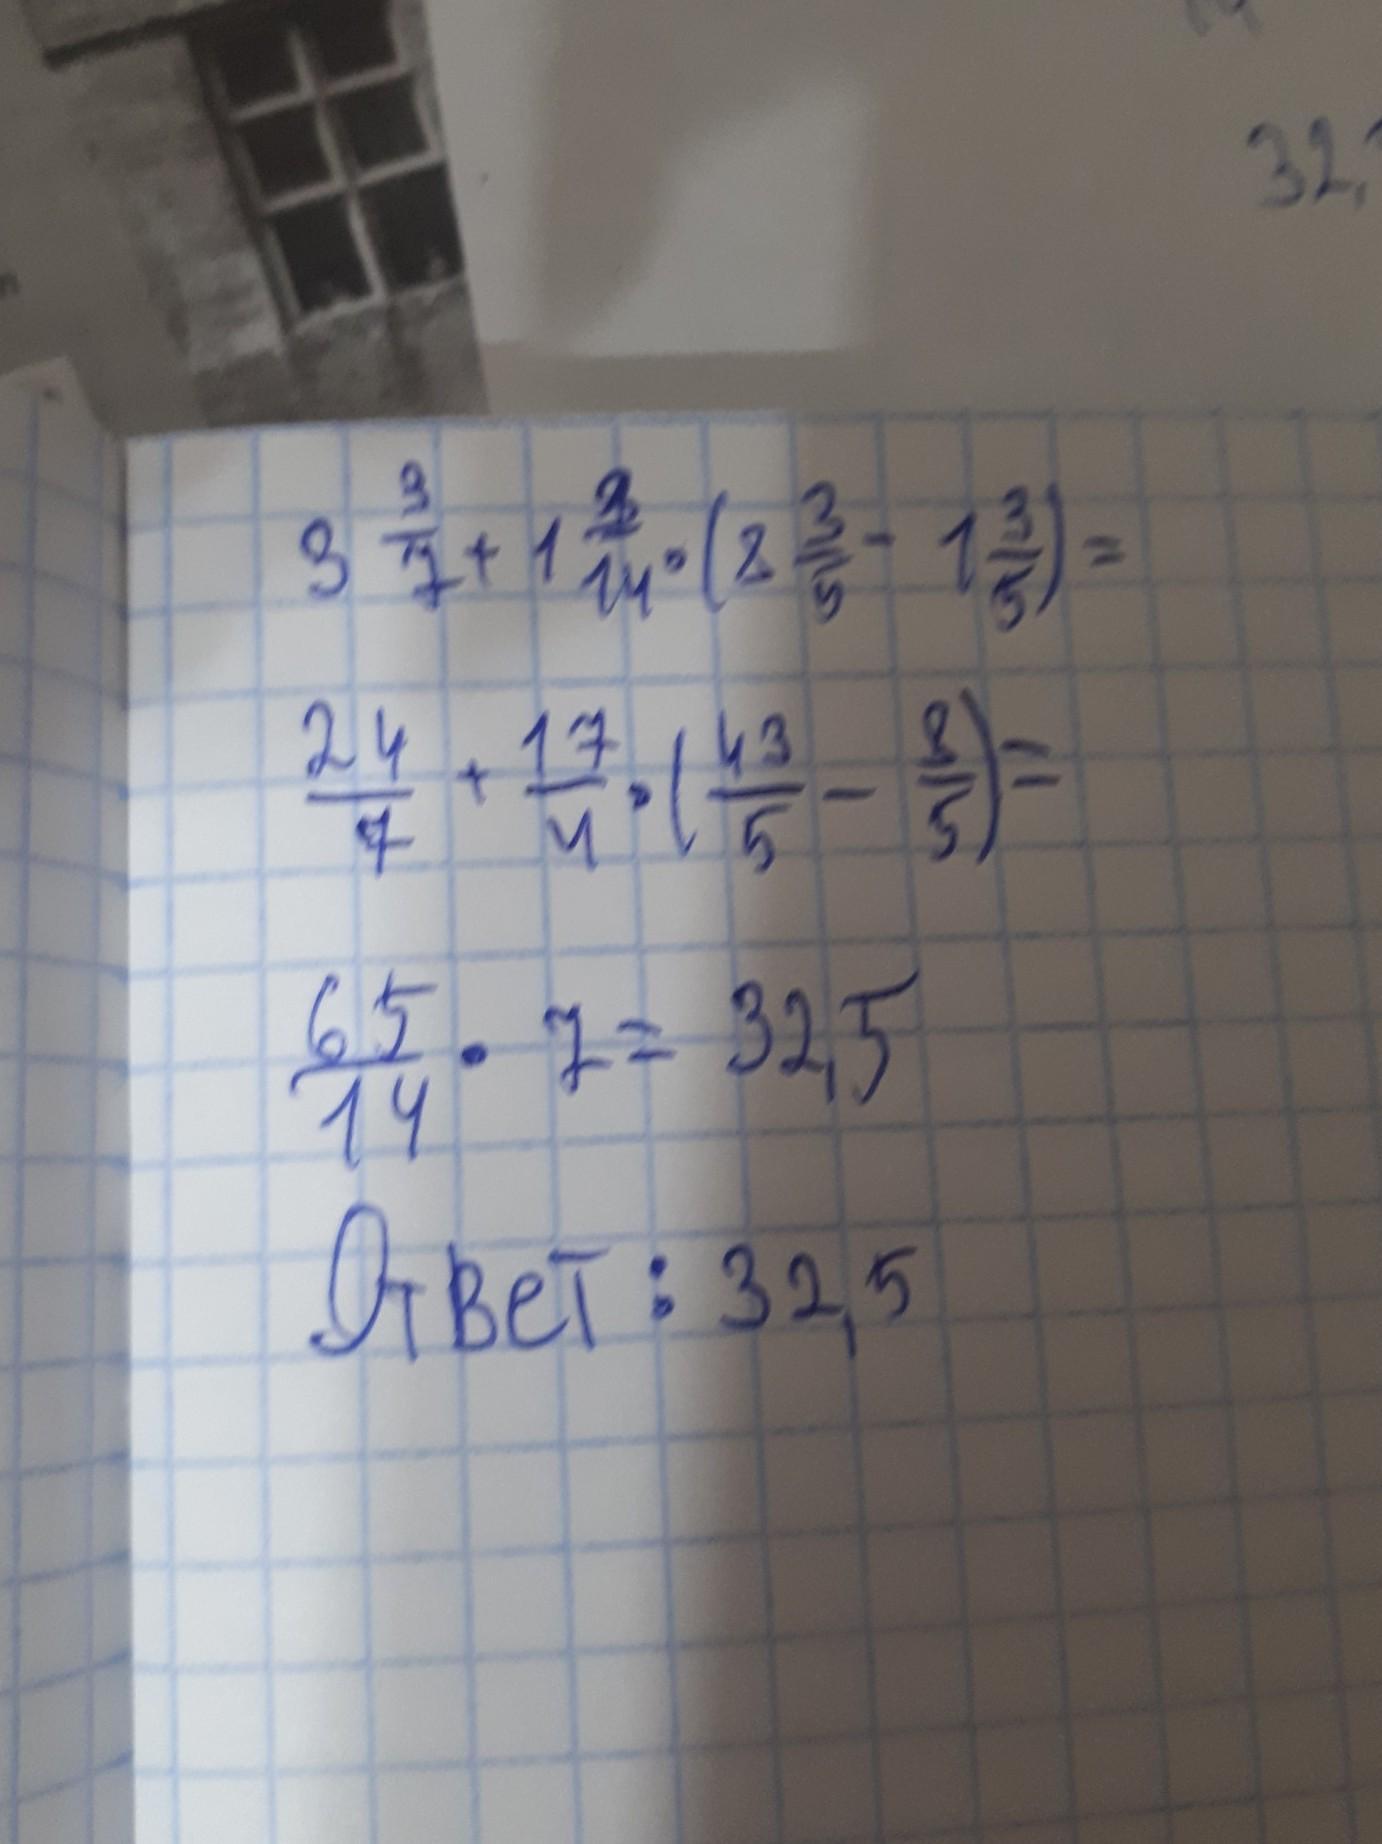 32,
3 3/7 + 1 3/14 · (8 3/5 - 1 3/5) =
24/7 + 17/4 · (43/5 - 8/5) =
65/14 · 7 = 32,5
Ответ: 32,5